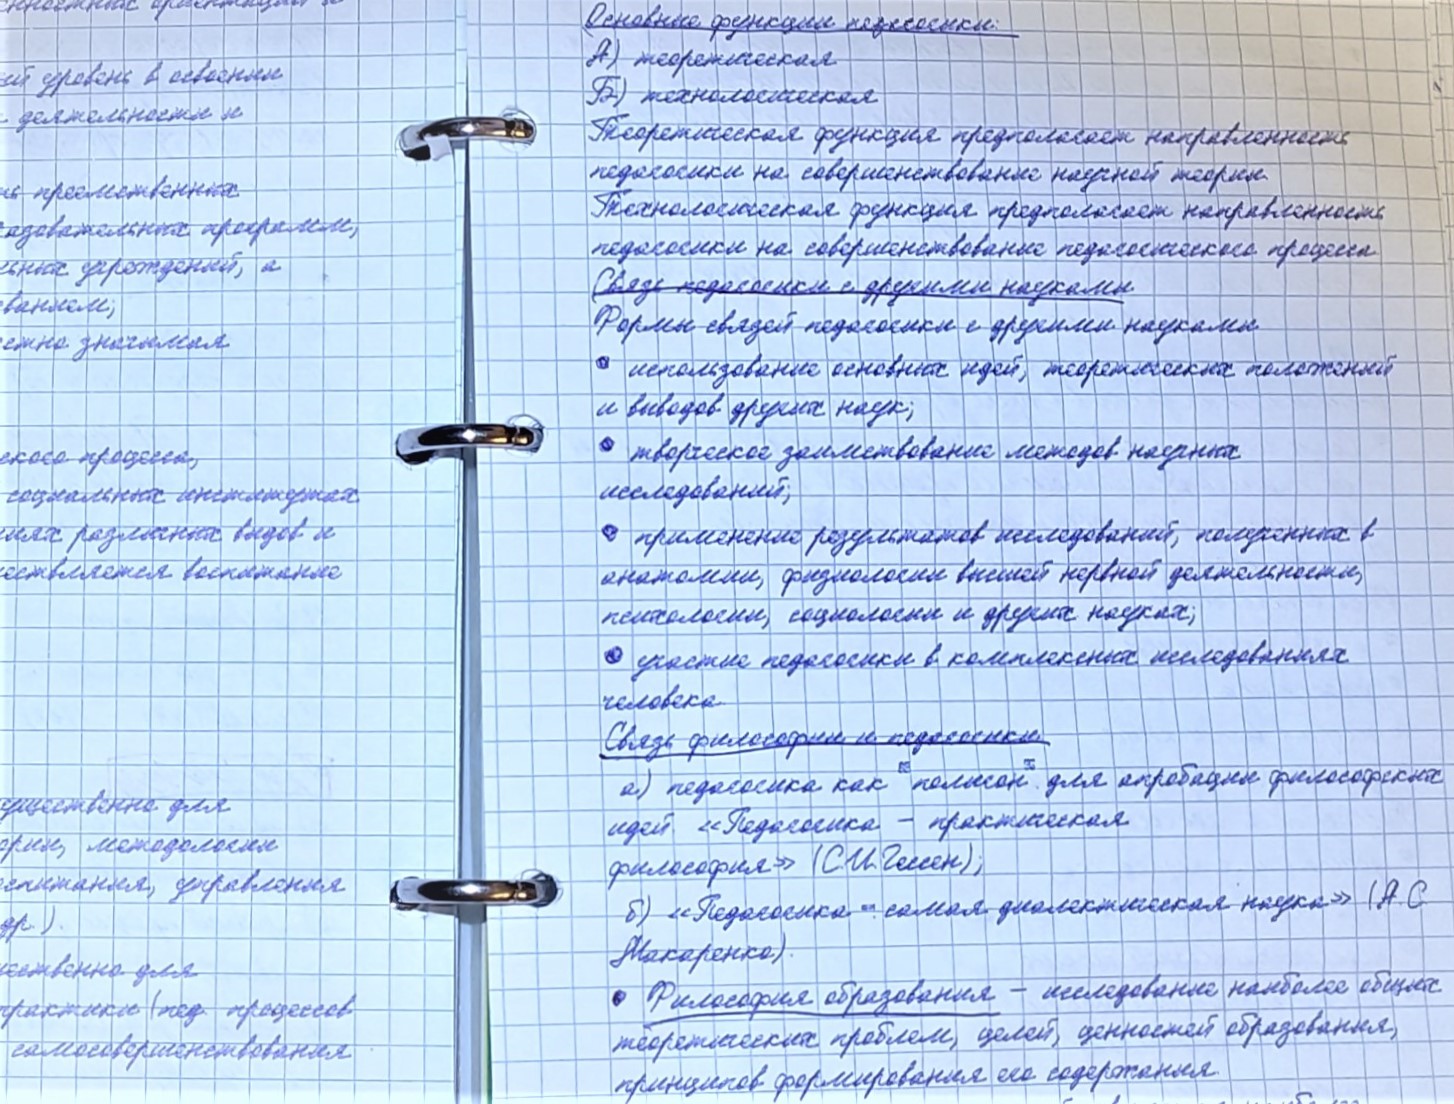 ый уровень в освоении
деятельности и
преемственных
азовательных программ,
ьных учреждений, а
ванием;
стно значимая
ского процесса,
социальных институтах
иях различных видов и
ествляется воспитание
ущественно для
ории, методологии
оспитания, управления
др.).
ественно для
практики (пед. процессов
самосовершенствования
Основные функции педагогики:
А) теоретическая
Б) технологическая
Теоретическая функция предполагает направленность
педагогики на совершенствование научной теории.
Технологическая функция предполагает направленность
педагогики на совершенствование педагогического процесса
Связь педагогики с другими науками
Формы связей педагогики с другими науками
• использование основных идей, теоретических положений
и выводов других наук;
• творческое заимствование методов научных
исследований;
• применение результатов исследований, полученных в
анатомии, физиологии высшей нервной деятельности,
психологии, социологии и других науках;
• участие педагогики в комплексных исследованиях
человека.
Связь философии и педагогики
а) педагогика как "полигон" для апробации философских
идей. «Педагогика – практическая
философия» (С.И. Гессен);
б) «Педагогика – самая диалектическая наука» (А.С.
Макаренко).
• Философия образования – исследование наиболее общих
теоретических проблем, целей, ценностей образования,
принципов формирования его содержания